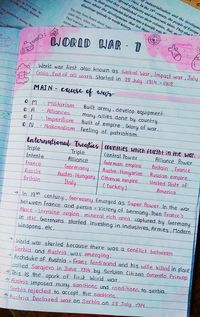 WORLD WAR - 1
World war first also known as Global War, Impact war, July
Crisis, End of all wars. Started in 28 July 1914 - 1918
MAIN - cause of war
M Militarism Built army, develop equipment
A Alliances many allies done by country
I Imperialism Built of empire, Glory of war
N Nationalism Feeling of patriotism.
International Treaties
Countries which fought in the war.
Triple Entente
Triple Alliance
Central Power
Allies Power
France
Germany
German empire
Britain, France
Russia
Austro-Hungary
Austro-Hungarian
Russian empire
Britain
Italy
Ottoman empire
United State of
(Turkey)
America
In 19th century, Germany Emerged as Super Power. In the war
between France and persia - Victory of Germany then France's
Alsace - Lorraine region - mineral rich area captured by Germany
in 1871. Germans started investing in industries, Armies, Modern
Weapons, etc.
World war started because there was a conflict between
Serbia and Austria was emerged.
Archduke of Austria - Franz Ferdinand and his wife killed in place
called Sarajevo in June 1914 by Serbian Citizen Gavrilo Princip
This is the spark of first World War
Austria imposed many sanctions and conditions to serbia.
Serbia rejected to accept the sanctions.
Austria Declared war on Serbia on 28 July 1914.